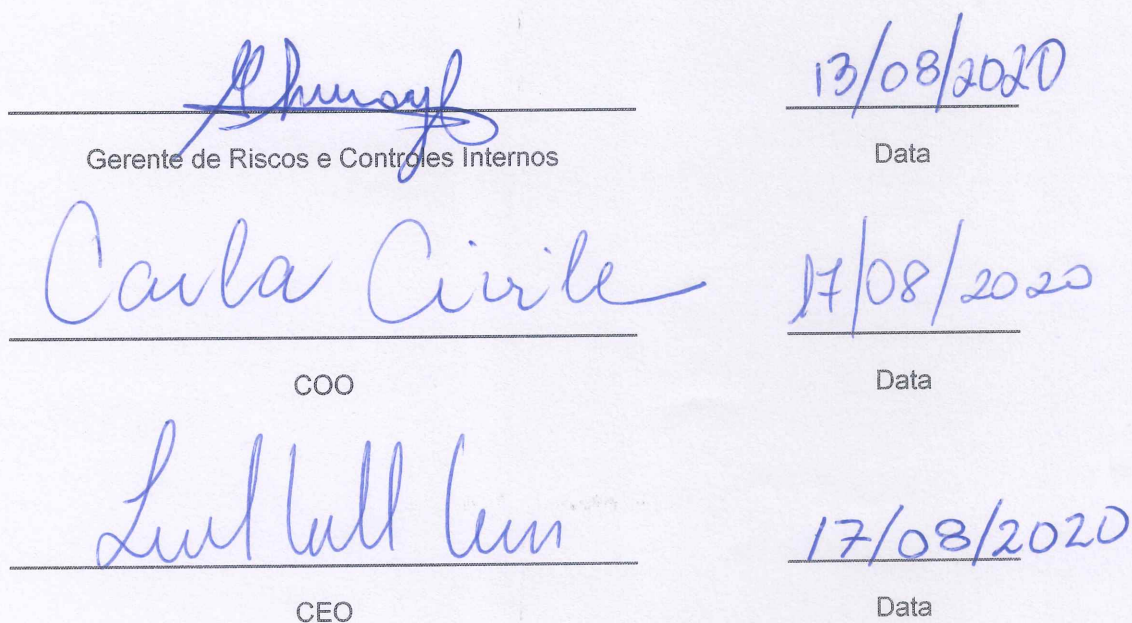 13/08/2020
Gerente de Riscos e Controles Internos Data
Carla Civile 17/08/2020
COO Data
17/08/2020
CEO Data